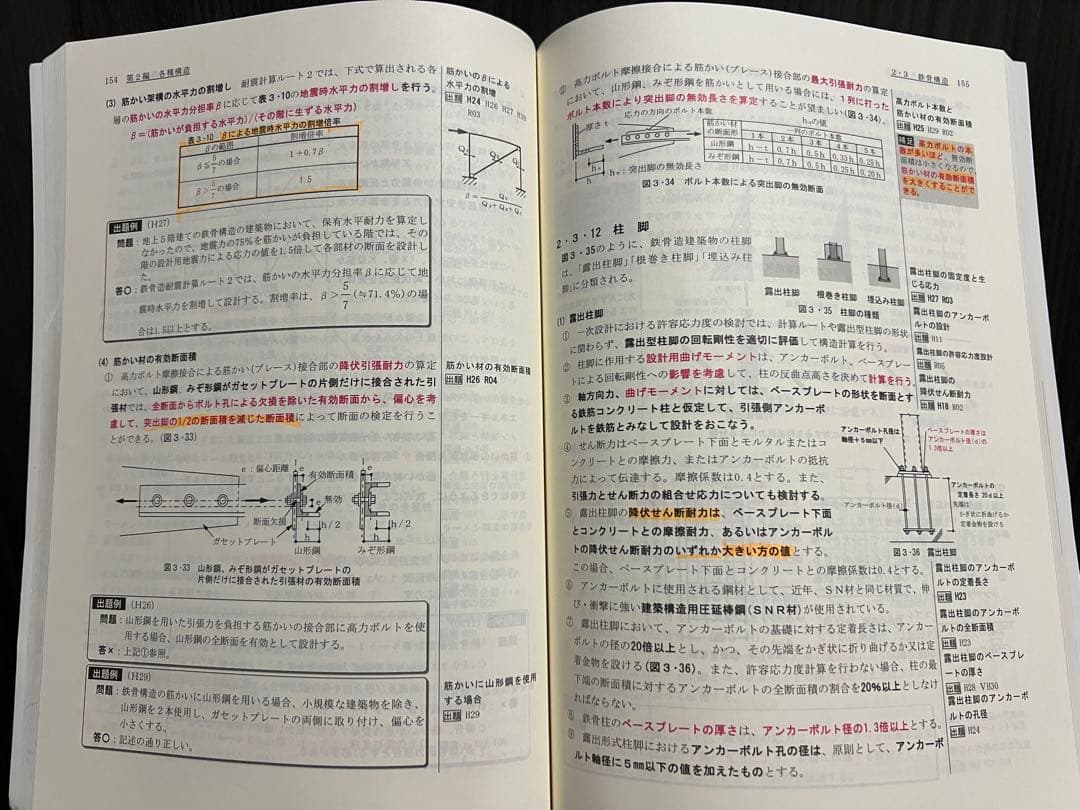 154 第2編 各種構造
(3) 筋かい架構の水平力の割増し 耐震計算ルート2では、下式で算出される各
層の筋かいの水平力分担率βに応じて表3・10の地震時水平力の割増しを行う。
β＝(筋かいが負担する水平力)/(その階に生ずる水平力)
表3・10 βによる地震時水平力の割増倍率
βの範囲 割増倍率
β≦5/7の場合 1＋0.7β
β＞5/7の場合 1.5
筋かいのβによる
水平力の割増
出題 H24 H26 H27 H30
R03
出題例 (H27)
問題：地上5階建ての鉄骨構造の建築物において、保有水平耐力を算定し
なかったので、地震力の75%を筋かいが負担している階では、その
階の設計用地震力による応力の値を1.5倍して各部材の断面を設計し
た。
答○：鉄骨造耐震計算ルート2では、筋かいの水平力分担率βに応じて地
震時水平力を割増して設計する。割増率は、β＞5/7(≒71.4%)の場
合は1.5以上とする。
(4) 筋かい材の有効断面積
① 高力ボルト摩擦接合による筋かい(ブレース)接合部の降伏引張耐力の算定
において、山形鋼、みぞ形鋼がガセットプレートの片側だけに接合された引
張材では、全断面からボルト孔による欠損を除いた有効断面から、偏心を考
慮して、突出脚の1/2の断面積を減じた断面積によって断面の検定を行うこ
とができる。(図3・33)
筋かい材の有効断面積
出題 H26 R04
e：偏心距離
有効断面積
無効
断面欠損
ガセットプレート
h/2
h/2
h
h
山形鋼 みぞ形鋼
図3・33 山形鋼、みぞ形鋼がガセットプレートの
片側だけに接合された引張材の有効断面積
出題例 (H26)
問題：山形鋼を用いた引張力を負担する筋かいの接合部に高力ボルトを使
用する場合、山形鋼の全断面を有効として設計する。
答×：上記①参照。
出題例 (H29)
問題：鉄骨構造の筋かいに山形鋼を用いる場合、小規模な建築物を除き、
山形鋼を2本使用し、ガセットプレートの両側に取り付け、偏心を
小さくする。
答○：記述の通り正しい。
筋かいに山形鋼を使用
する場合
出題 H29
2・3 鉄骨構造 155
② 高力ボルト摩擦接合による筋かい(ブレース)接合部の最大引張耐力の算定
において、山形鋼、みぞ形鋼を筋かいとして用いる場合には、1列に打った
ボルト本数により突出脚の無効長さを算定することが望ましい(図3・34)。
厚さt
応力の方向のボルト本数
hₙの値
筋かい材の断面形 一列のボルト本数
1本 2本 3本 4本 5本
山形鋼 h－t 0.7h 0.5h 0.33h 0.25h
みぞ形鋼 h－t 0.7h 0.5h 0.25h 0.20h
hₙ：突出脚の無効長さ
図3・34 ボルト本数による突出脚の無効断面
高力ボルト本数と
筋かい材の有効断面積
出題 H25 H29 R02
補足 高力ボルトの本
数が多いほど、無効断
面積は小さくなるので、
筋かい材の有効断面積
を大きくすることがで
きる。
2・3・12 柱 脚
図3・35のように、鉄骨造建築物の柱脚
は、「露出柱脚」「根巻き柱脚」「埋込み柱
脚」に分類される。
露出柱脚 根巻き柱脚 埋込み柱脚
図3・35 柱脚の種類
(1) 露出柱脚
① 一次設計における許容応力度の検討では、計算ルートや露出型柱脚の形状
に関わらず、露出型柱脚の回転剛性を適切に評価して構造計算を行う。
② 柱脚に作用する設計用曲げモーメントは、アンカーボルト、ベースプレー
トによる回転剛性への影響を考慮して、柱の反曲点高さを決めて計算を行う。
③ 軸方向力、曲げモーメントに対しては、ベースプレートの形状を断面とす
る鉄筋コンクリート柱と仮定して、引張側アンカーボ
ルトを鉄筋とみなして設計をおこなう。
④ せん断力はベースプレート下面とモルタルまたはコ
ンクリートとの摩擦力、またはアンカーボルトの抵抗
力によって伝達する。摩擦係数は0.4とする。また、
引張力とせん断力の組合せ応力についても検討する。
⑤ 露出柱脚の降伏せん断耐力は、ベースプレート下面
とコンクリートとの摩擦耐力、あるいはアンカーボル
トの降伏せん断耐力のいずれか大きい方の値とする。
この場合、ベースプレート下面とコンクリートとの摩擦係数は0.4とする。
⑥ アンカーボルトに使用される鋼材として、近年、SN材と同じ材質で、伸
び・衝撃に強い建築構造用圧延棒鋼(SNR材)が使用されている。
⑦ 露出柱脚において、アンカーボルトの基礎に対する定着長さは、アンカー
ボルトの径の20倍以上とし、かつ、その先端をかぎ状に折り曲げるか又は定
着金物を設ける(図3・36)。また、許容応力度計算を行わない場合、柱の最
下端の断面積に対するアンカーボルトの全断面積の割合を20%以上としなけ
ればならない。
⑧ 鉄骨柱のベースプレートの厚さは、アンカーボルト径の1.3倍以上とする。
⑨ 露出形式柱脚におけるアンカーボルト孔の径は、原則として、アンカーボ
ルト軸径に5mm以下の値を加えたものとする。
アンカーボルト孔径は
軸径＋5mm以下
ベースプレートの厚さは
アンカーボルト径(d)の
1.3倍以上
アンカーボルト径(d)
アンカーボルトの
定着長さ 20d以上
先端は
かぎ状に折曲げるか
定着金物を設ける
図3・36 露出柱脚
露出柱脚の固定度と生
じる応力
出題 H27 R03
露出柱脚のアンカーボ
ルトの設計
出題 H11
露出柱脚の許容応力度設計
出題 R05
露出柱脚の
降伏せん断耐力
出題 H18 R02
露出柱脚のアンカーボ
ルトの定着長さ
出題 H23
露出柱脚のアンカーボ
ルトの全断面積
出題 H23
露出柱脚のベースプレ
ートの厚さ
出題 H28 VH30
露出柱脚のアンカーボ
ルトの孔径
出題 H24